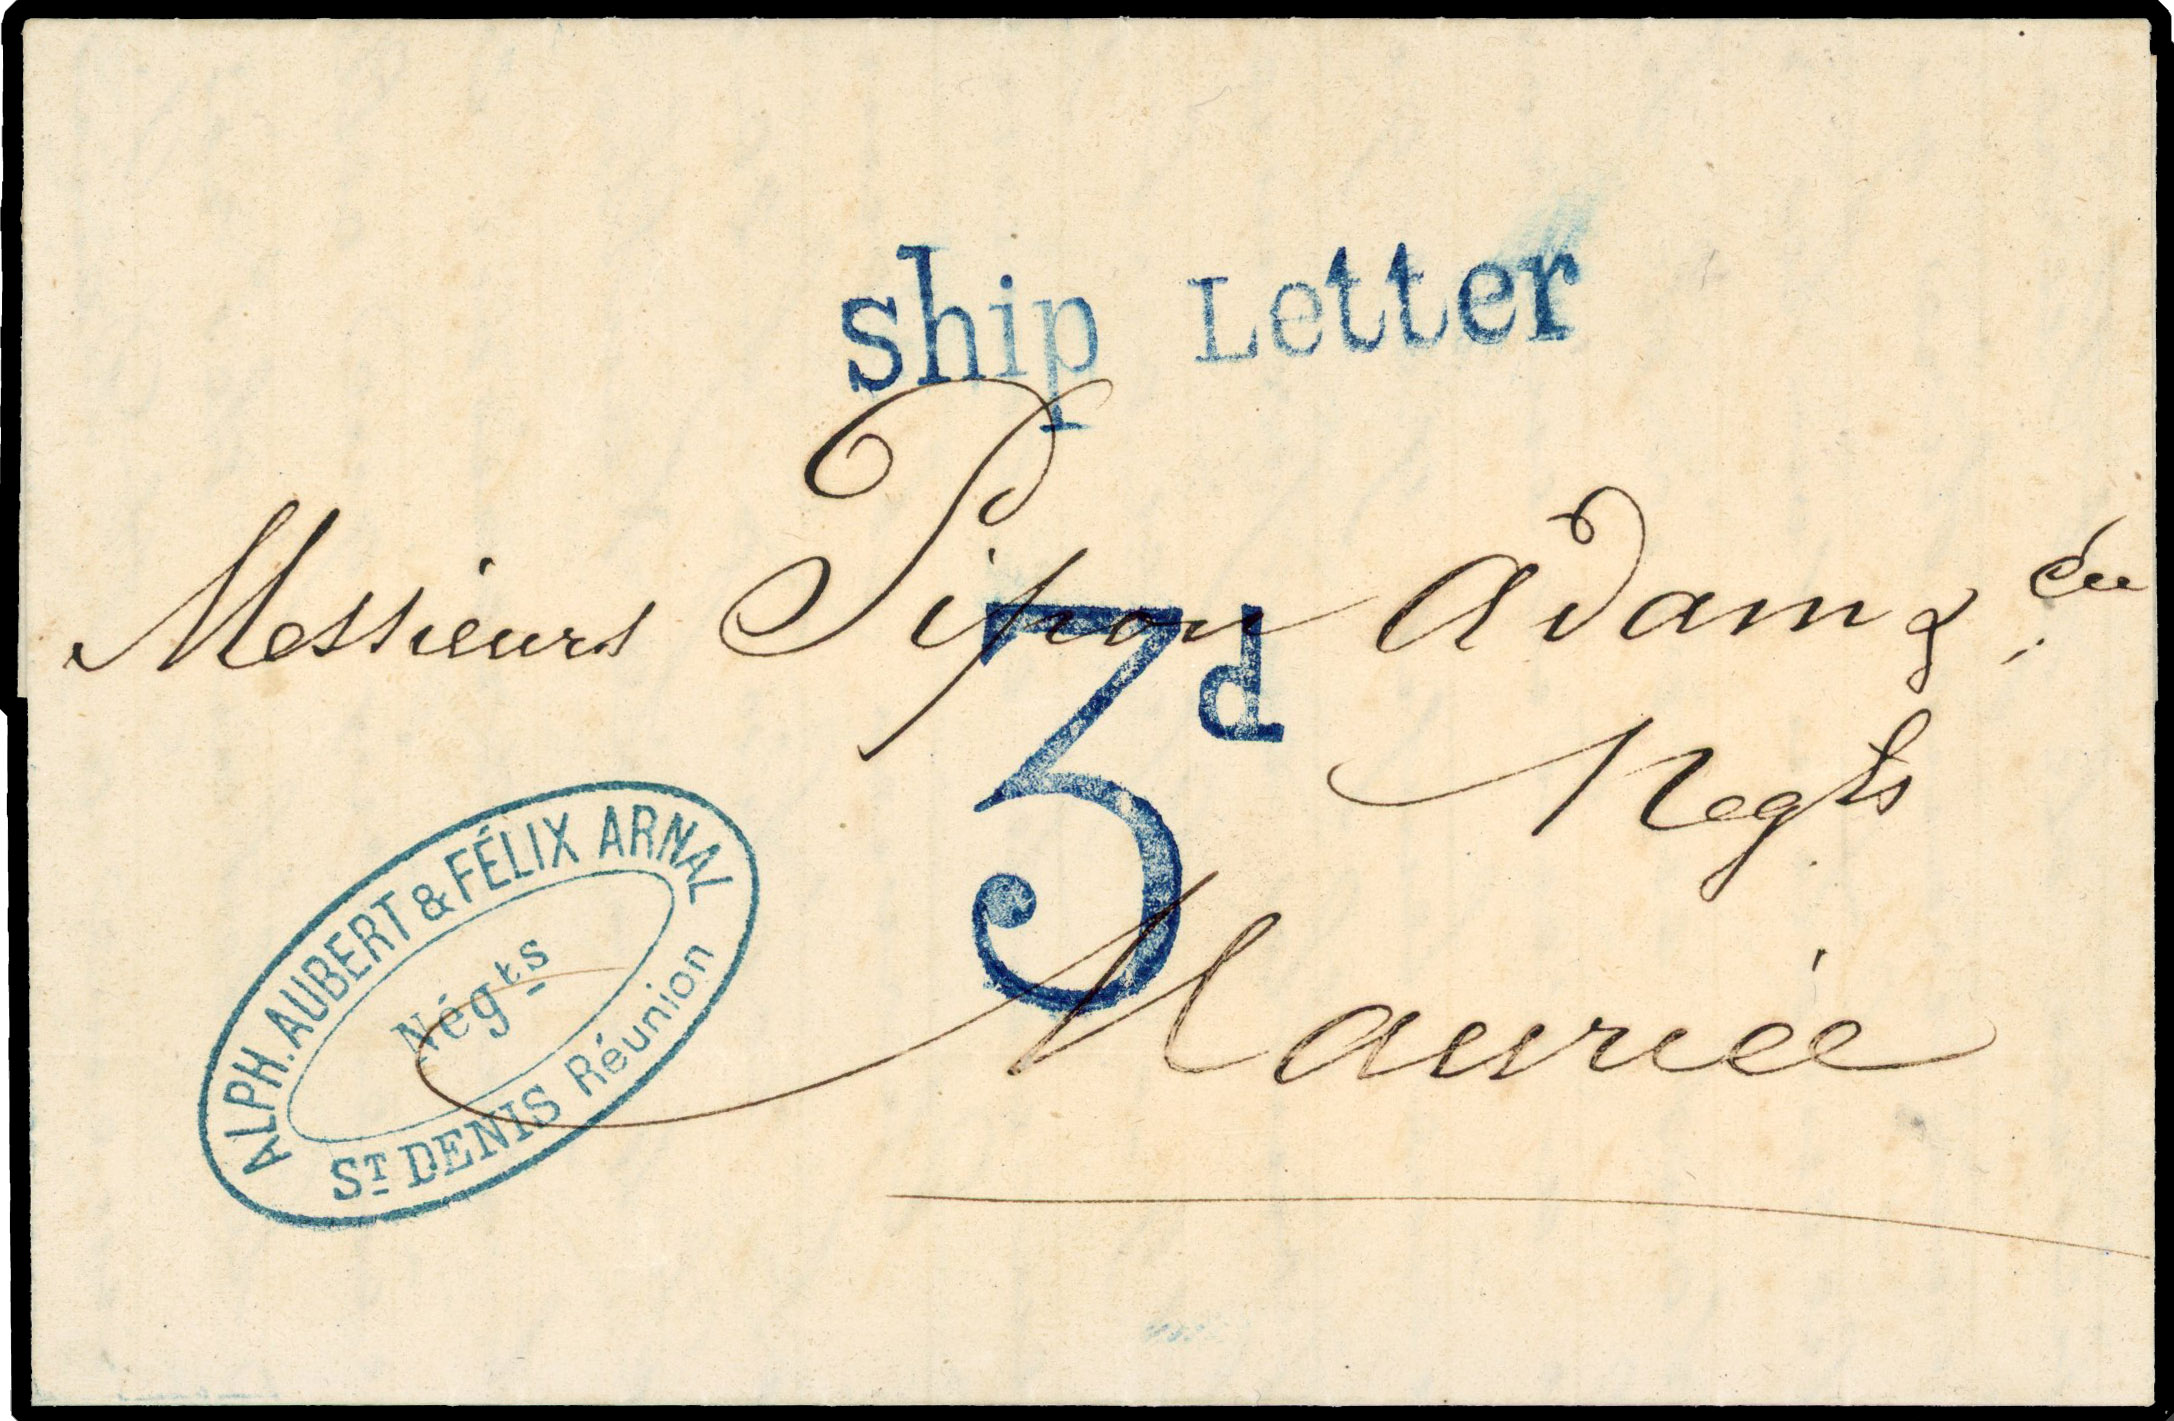 Ship Letter
Messieurs Pipon Adam & Cie
3d
Negts
Maurice
ALPH. AUBERT & FÉLIX ARNAL
Négts
ST DENIS Réunion